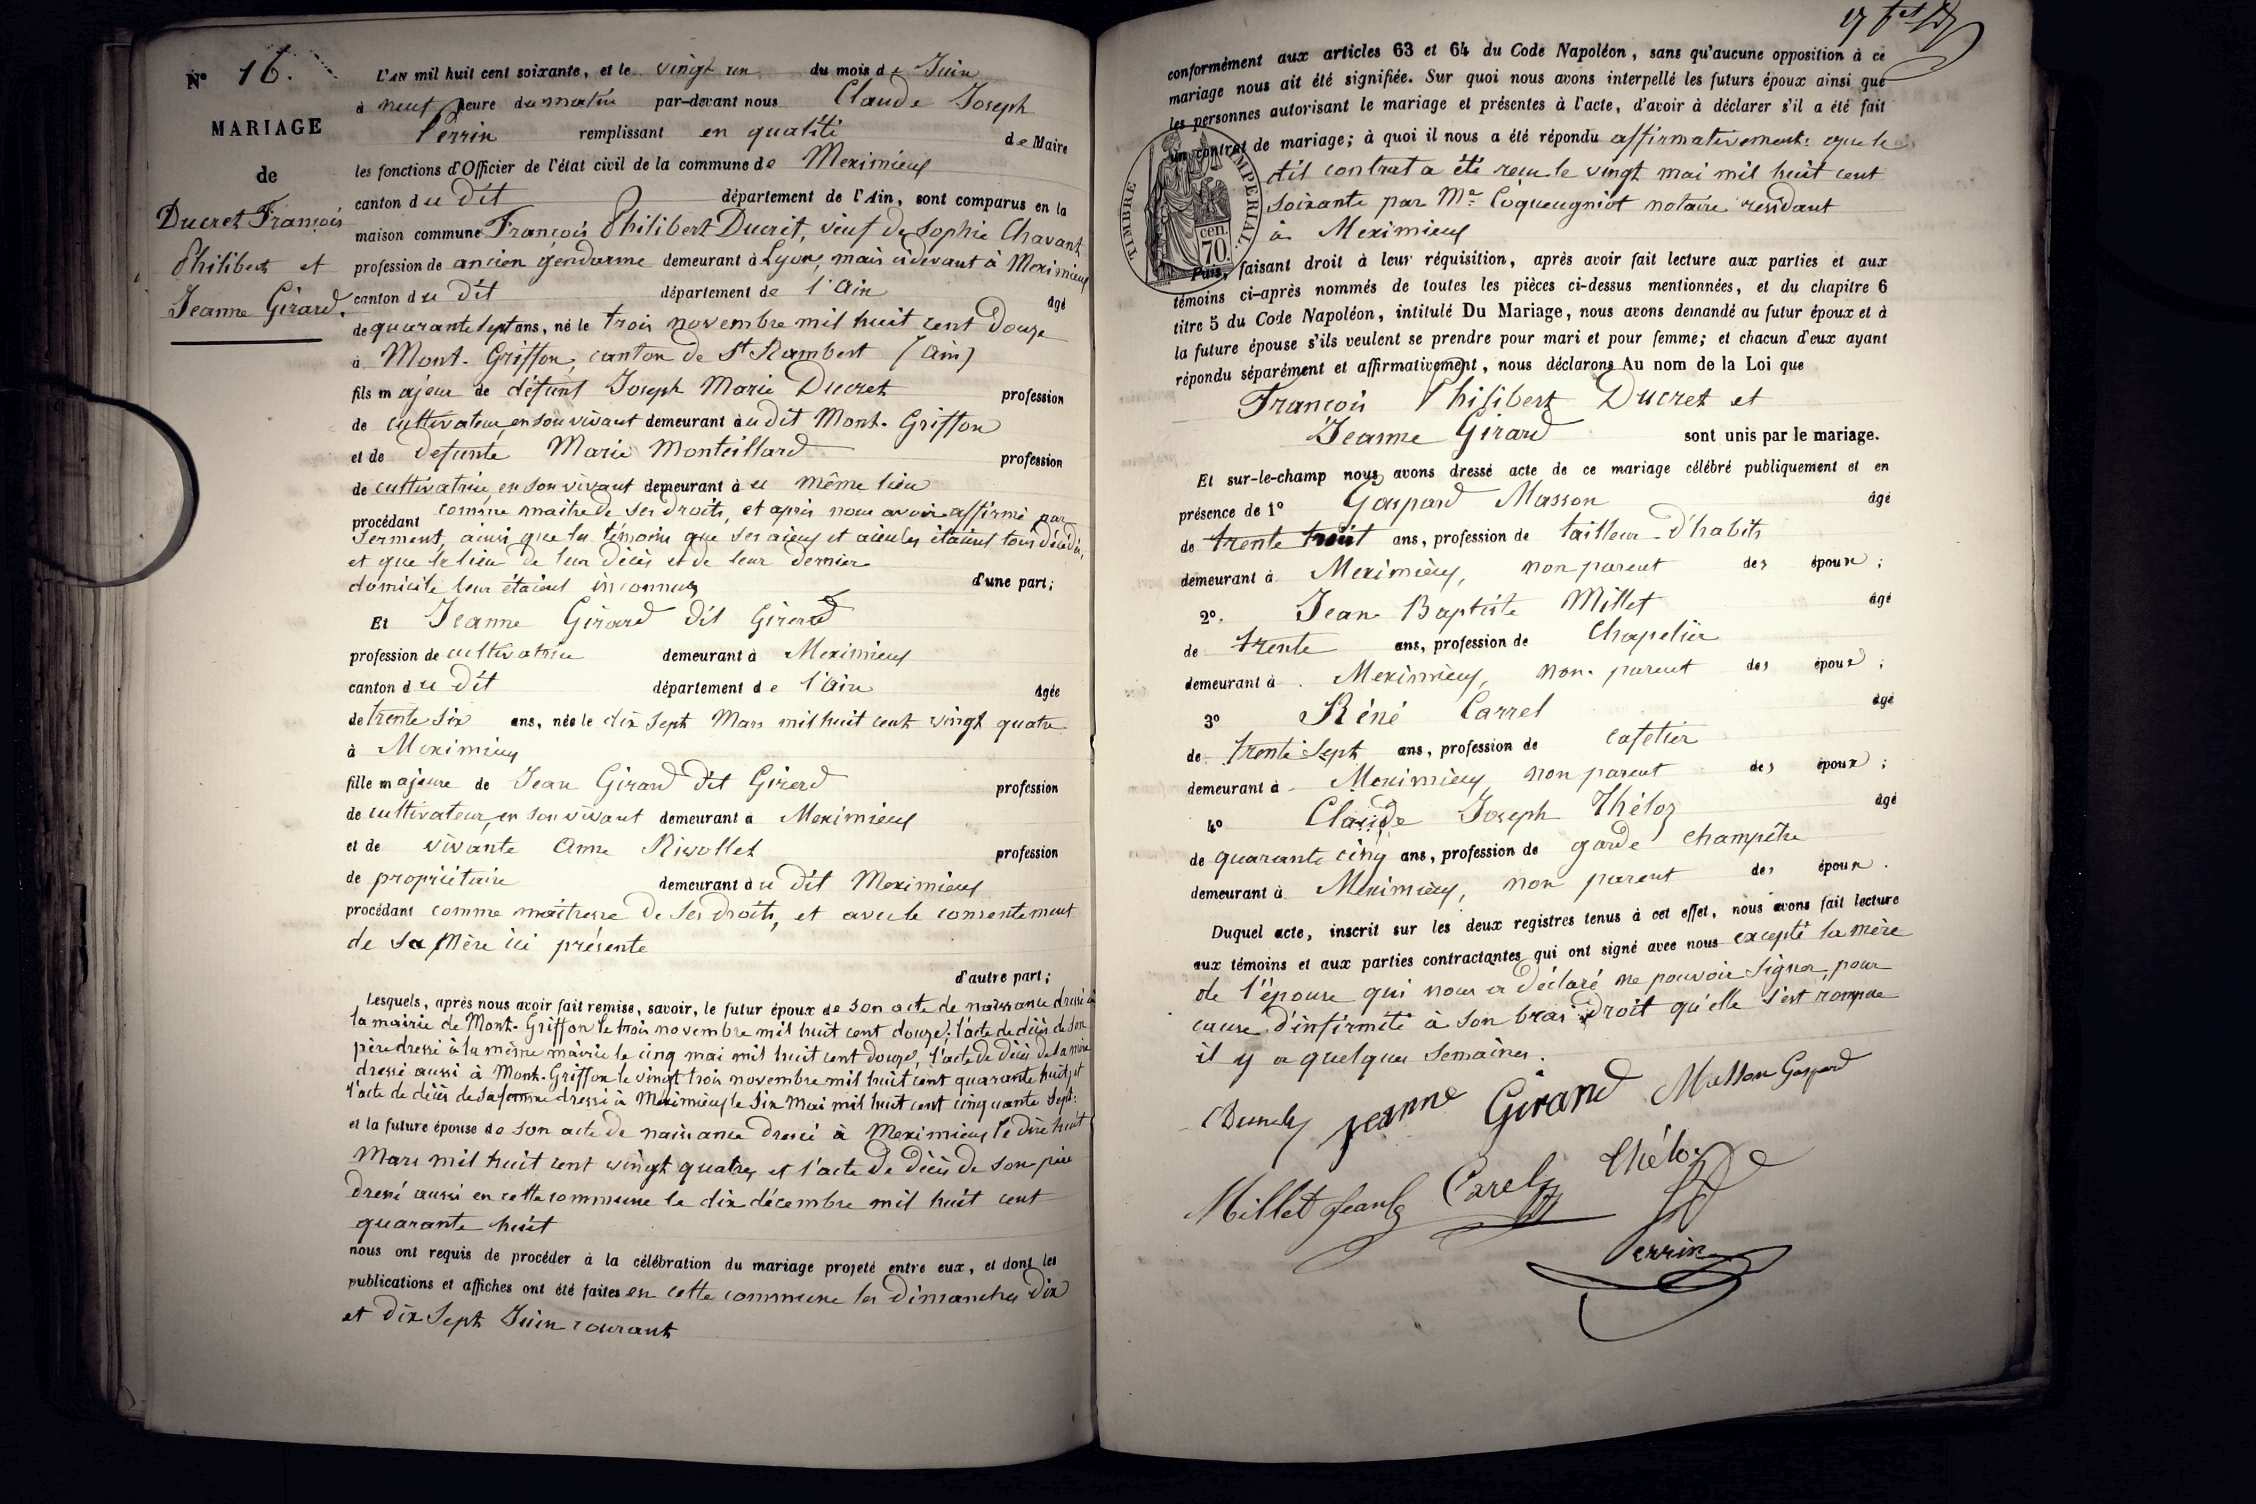 N° 16.
MARIAGE
de
Ducret François
Philibert et
Jeanne Girard.
L'AN mil huit cent soixante, et le vingt un du mois de Juin
à neuf heure du matin par-devant nous Claude Joseph
Perrin remplissant en qualité de Maire
les fonctions d'Officier de l'état civil de la commune de Meximieux
canton du dit département de l'Ain, sont comparus en la
maison commune François Philibert Ducret, veuf de Sophie Chavant
profession de ancien gendarme demeurant à Lyon, mais cidevant à Meximieux
canton du dit département de l'Ain âgé
de quarante sept ans, né le trois novembre mil huit cent douze
à Mont-Griffon, canton de St Rambert (Ain)
fils majeur de défunt Joseph Marie Ducret profession
de cultivateur, en son vivant demeurant audit Mont-Griffon
et de defunte Marie Monteillard profession
de cultivatrice, en son vivant demeurant au même lieu
procédant comme maitre de ses droits, et après nous avoir affirmé par
serment, ainsi que les témoins que ses aïeux et aïeules étaient tous décédés,
et que le lieu de leur décès et de leur dernier
domicile leur étaient inconnus d'une part;
Et Jeanne Girard dit Girerd
profession de cultivatrice demeurant à Meximieux
canton du dit département de l'Ain âgée
de trente six ans, née le dix sept Mars mil huit cent vingt quatre
à Meximieux
fille majeure de Jean Girard dit Girerd profession
de cultivateur, en son vivant demeurant à Meximieux
et de vivante Anne Rivollet profession
de propriétaire demeurant au dit Meximieux
procédant comme maîtresse de ses droits, et avec le consentement
de sa mère ici présente
d'autre part;
Lesquels, après nous avoir fait remise, savoir, le futur époux de son acte de naissance dressé à
la mairie de Mont-Griffon le trois novembre mil huit cent douze; l'acte de décès de son
père dressé à la même mairie le cinq mai mil huit cent douze, l'acte de décès de sa mère
dressé aussi à Mont-Griffon le vingt trois novembre mil huit cent quarante huit, et
l'acte de décès de sa femme dressé à Meximieux le six Mai mil huit cent cinquante sept:
et la future épouse de son acte de naissance dressé à Meximieux le dix huit
Mars mil huit cent vingt quatre, et l'acte de décès de son père
dressé aussi en cette commune le dix décembre mil huit cent
quarante huit
nous ont requis de procéder à la célébration du mariage projeté entre eux, et dont les
publications et affiches ont été faites en cette commune les dimanches dix
et dix sept Juin courant
conformément aux articles 63 et 64 du Code Napoléon, sans qu'aucune opposition à ce
mariage nous ait été signifiée. Sur quoi nous avons interpellé les futurs époux ainsi que
les personnes autorisant le mariage et présentes à l'acte, d'avoir à déclarer s'il a été fait
un contrat de mariage; à quoi il nous a été répondu affirmativement: que le
dit contrat a été reçu le vingt mai mil huit cent
soixante par Me Coqueugniot notaire résidant
à Meximieux
TIMBRE IMPERIAL.
cen.
70.
Puis, faisant droit à leur réquisition, après avoir fait lecture aux parties et aux
témoins ci-après nommés de toutes les pièces ci-dessus mentionnées, et du chapitre 6
titre 5 du Code Napoléon, intitulé Du Mariage, nous avons demandé au futur époux et à
la future épouse s'ils veulent se prendre pour mari et pour femme; et chacun d'eux ayant
répondu séparément et affirmativement, nous déclarons Au nom de la Loi que
François Philibert Ducret et
Jeanne Girard sont unis par le mariage.
Et sur-le-champ nous avons dressé acte de ce mariage célébré publiquement et en
présence de 1° Gaspard Masson âgé
de trente ans, profession de tailleur d'habits
demeurant à Meximieux, non parent des époux;
2°. Jean Baptiste Millet âgé
de trente ans, profession de Chapelier
demeurant à Meximieux, non parent des époux;
3° Réné Carrel âgé
de trente sept ans, profession de cafetier
demeurant à Meximieux, non parent des époux;
4° Claude Joseph Théloz âgé
de quarante cinq ans, profession de garde champêtre
demeurant à Meximieux, non parent des époux.
Duquel acte, inscrit sur les deux registres tenus à cet effet, nous avons fait lecture
aux témoins et aux parties contractantes qui ont signé avec nous excepté la mère
de l'épouse qui nous a déclaré ne pouvoir signer, pour
cause d'infirmité à son bras droit qu'elle s'est rompue
il y a quelques semaines.
Jeanne Girard Masson Gaspard
Millet Jean Carel Théloz
Perrin